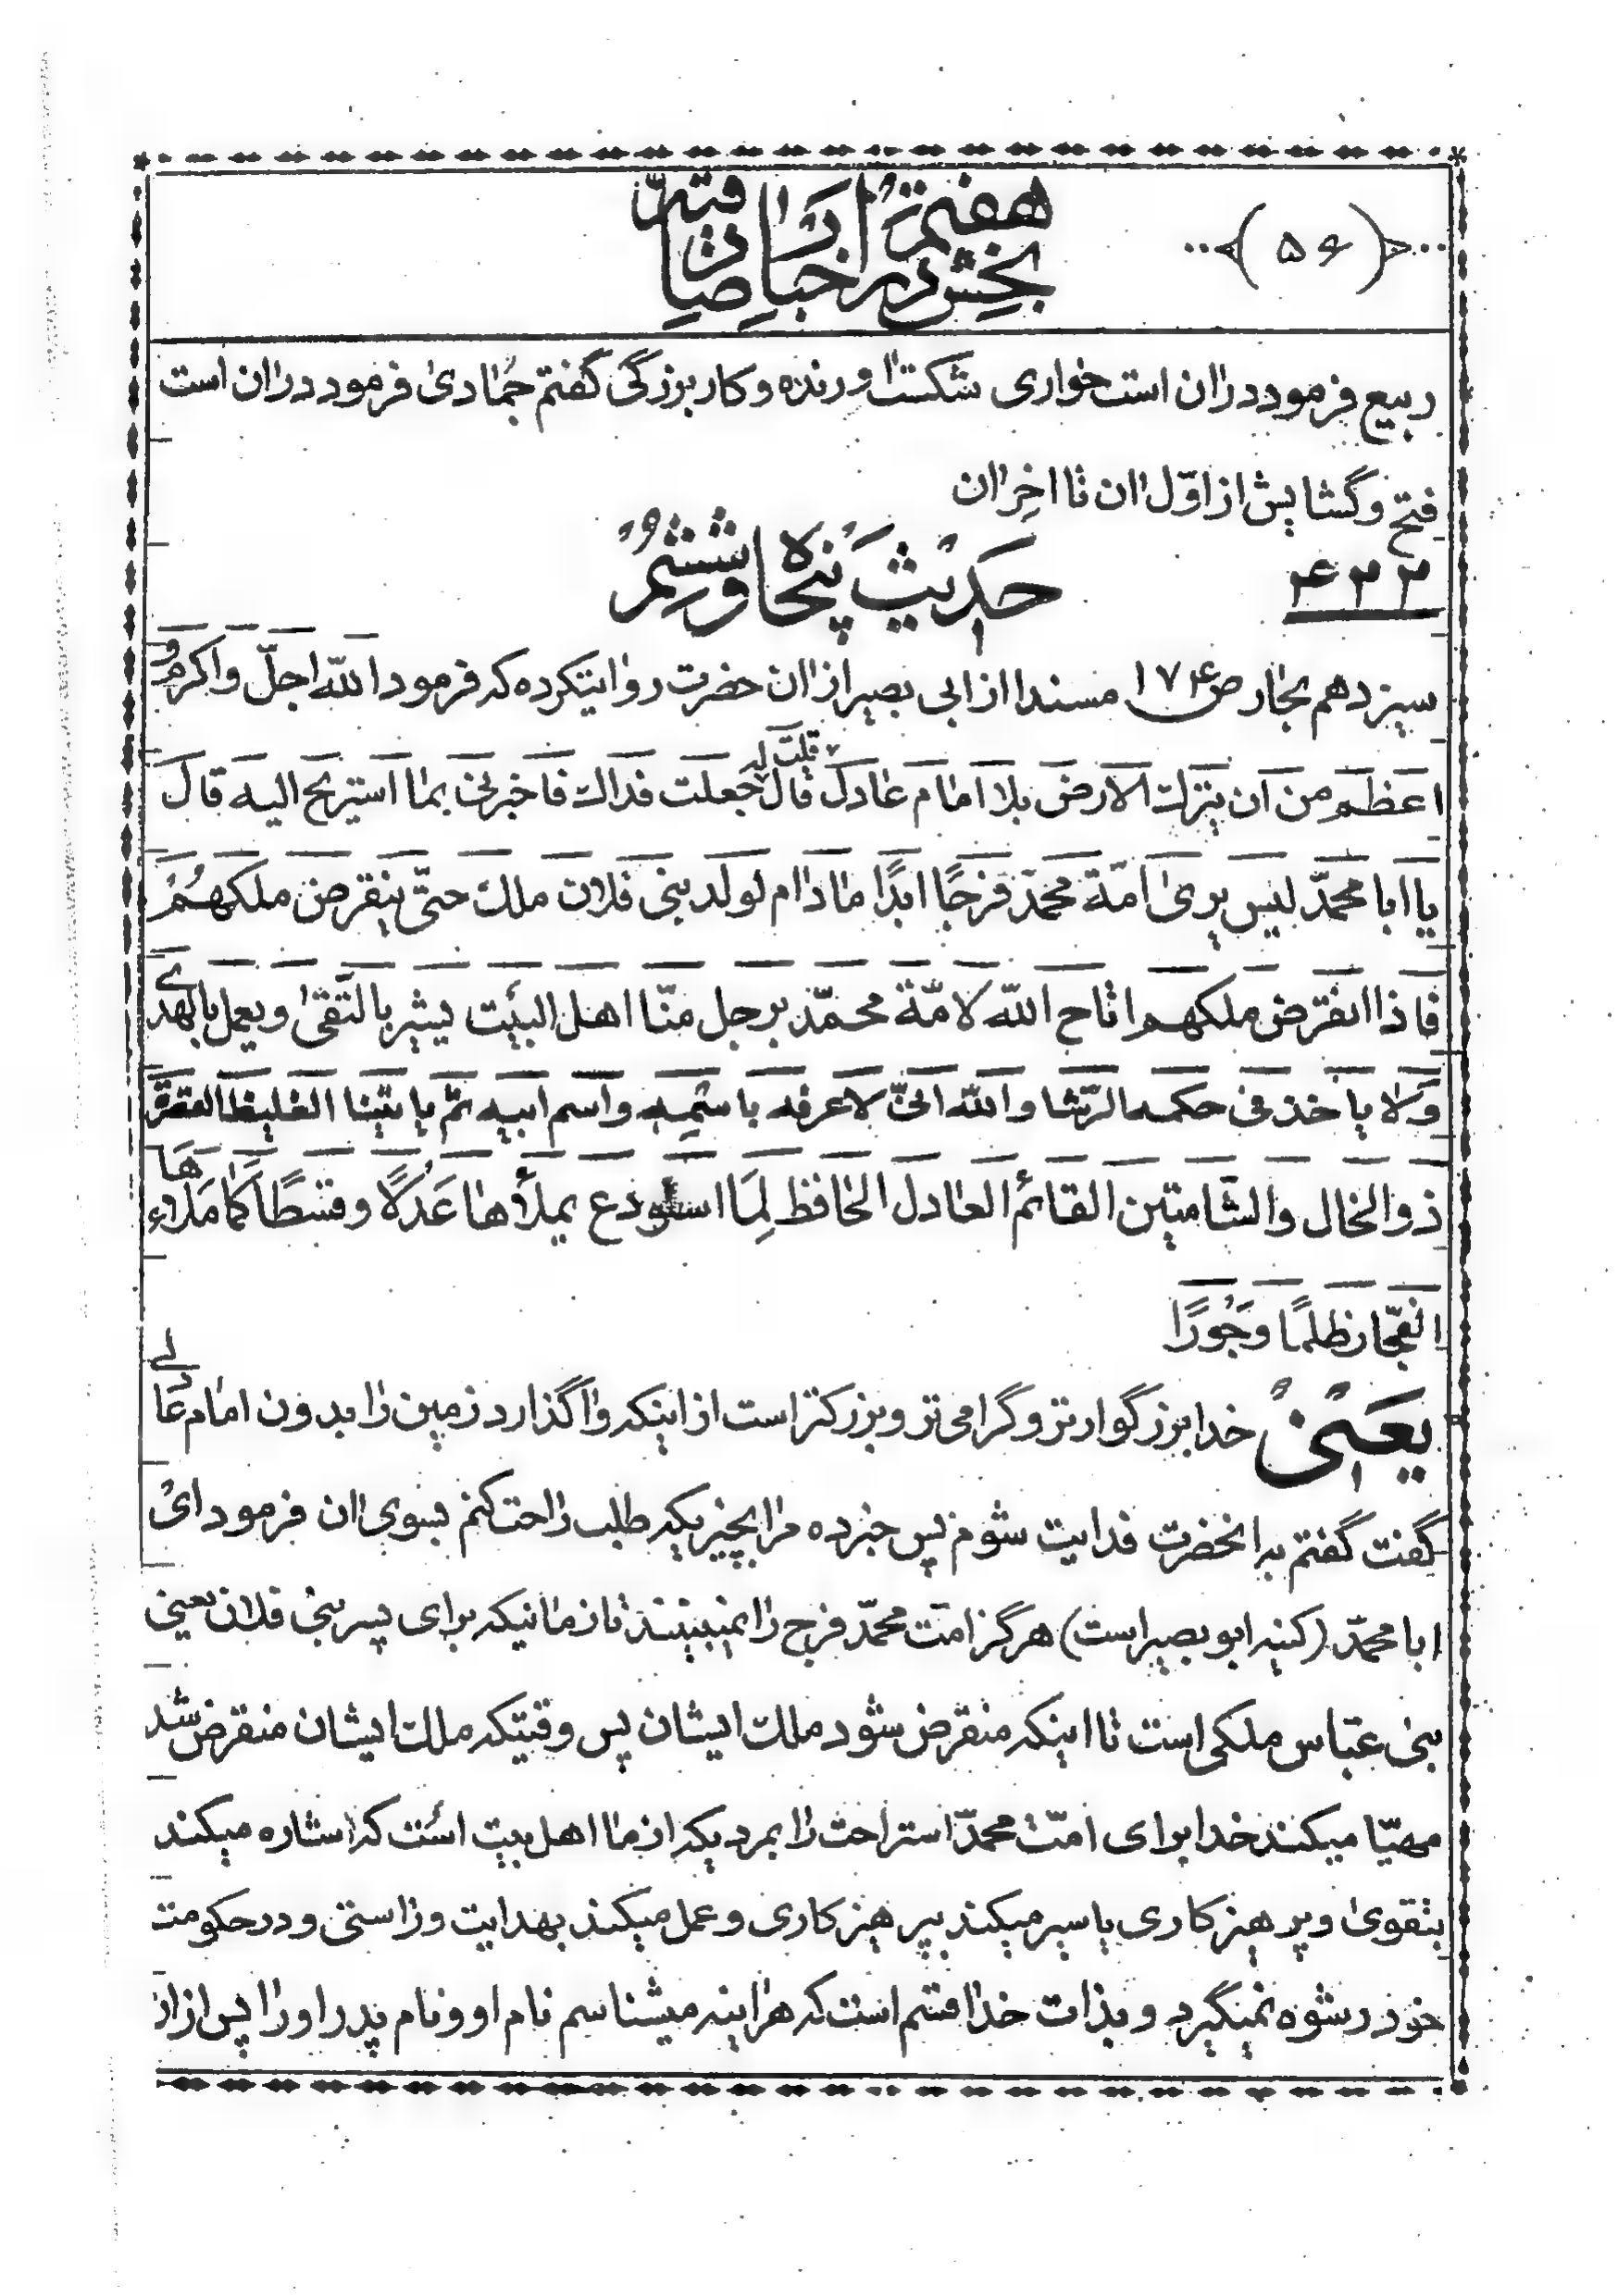 (۵۶)
بخش هفتم در اخبار صادقیه
ربیع فرمود دران است خواری شکست اورنده و کار بزرگی گفتم جمادی فرمود دران است
فتح و گشایش از اوّل اان تا اخِر اان
۴۲۲
حدیث پنجاه و ششم
سیزدهم بحار ص۱۷۴ مسندا از ابی بصیر از اان حضرت روایتکرده که فرمود الله اجلّ واکرم و
اعظم من ان یترک الارض بلا امام عادل قال قلت له جعلت فداک فاخبرنی بما استریح الیه قال
یا ابا محمّد لیس یری امّة محمّد فرجًا ابدًا ما دام لولد بنی فلان ملک حتّی ینقرض ملکهم
فاذا انقرض ملکهم اتاح الله لامّة محمّد برجل منّا اهل البیت یشیر بالتّقی و یعمل بالهدی
ولا یاخذ فی حکمه الرّشا والله انّی لاعرفه باسمه واسم ابیه ثمّ یاتینا الغلیظ القصرة
ذوالخال والشّامتین القائم العادل الحافظ لِمَا استودع یملأها عَدلًا و قسطًا کما ملاءها
الفجّار ظلمًا وجُورًا
یعنی خدا بزرگوارتر و گرامی تر و بزرکتر است از اینکه واگذارد زمین را بدون امام عادلی
گفت گفتم بدانحضرت فدایت شوم پس خبرده مرا بچیزیکه طلب راحت کنم بسوی اان فرمود ای
ابا محمّد (کنیه ابو بصیر است) هرگز امّت محمّد فرج را نمیبینند تا زمانیکه برای پسر بنی فلان یعنی
بنی عبّاس ملکی است تا اینکه منقرض شود ملک ایشان پس وقتیکه ملک ایشان منقرض شد
مهیّا میکند خدا برای امّت محمّد استراحت را بمردیکه از ما اهل بیت است که اشاره میکند
بتقوی و پرهیزکاری یا سیر میکند بپرهیزکاری و عمل میکند بهدایت و راستی و در حکومت
خود رشوه نمیگیرد و بذات خدا قسم است که هراینه میشناسم نام او و نام پدر او را پس از ان